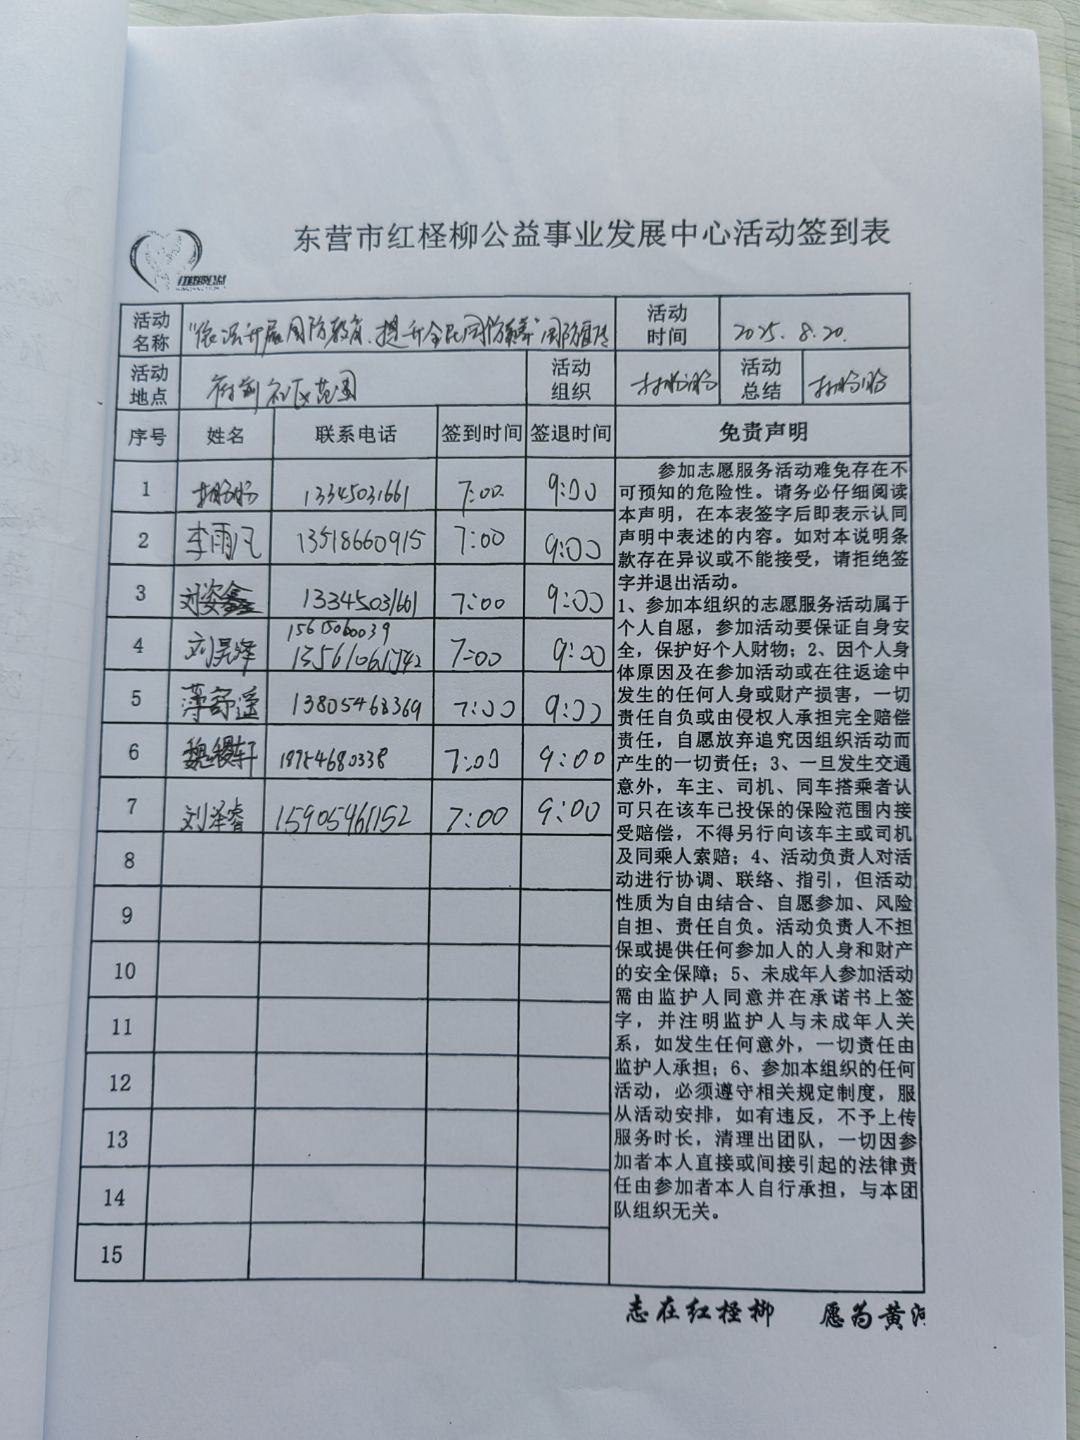 东营市红柽柳公益事业发展中心活动签到表
活动名称 "依法开展国防教育、提升全民国防素养"国防宣传 活动时间 2025.8.20.
活动地点 社区范围 活动组织 活动总结
序号 姓名 联系电话 签到时间 签退时间 免责声明
1 13345031661 7:00 9:00
2 李雨凡 13518660915 7:00 9:00
3 刘姿鑫 13345031661 7:00 9:00
4 刘昊泽 7:00 9:00
5 薄舒遥 13805468369 7:00 9:00
6 魏稷轩 18954680338 7:00 9:00
7 刘泽睿 15905461152 7:00 9:00
8
9
10
11
12
13
14
15
参加志愿服务活动难免存在不
可预知的危险性。请务必仔细阅读
本声明，在本表签字后即表示认同
声明中表述的内容。如对本说明条
款存在异议或不能接受，请拒绝签
字并退出活动。
1、参加本组织的志愿服务活动属于
个人自愿，参加活动要保证自身安
全，保护好个人财物；2、因个人身
体原因及在参加活动或在往返途中
发生的任何人身或财产损害，一切
责任自负或由侵权人承担完全赔偿
责任，自愿放弃追究因组织活动而
产生的一切责任；3、一旦发生交通
意外，车主、司机、同车搭乘者认
可只在该车已投保的保险范围内接
受赔偿，不得另行向该车主或司机
及同乘人索赔；4、活动负责人对活
动进行协调、联络、指引，但活动
性质为自由结合、自愿参加、风险
自担、责任自负。活动负责人不担
保或提供任何参加人的人身和财产
的安全保障；5、未成年人参加活动
需由监护人同意并在承诺书上签
字，并注明监护人与未成年人关
系，如发生任何意外，一切责任由
监护人承担；6、参加本组织的任何
活动，必须遵守相关规定制度，服
从活动安排，如有违反，不予上传
服务时长，清理出团队，一切因参
加者本人直接或间接引起的法律责
任由参加者本人自行承担，与本团
队组织无关。
志在红柽柳 愿为黄河